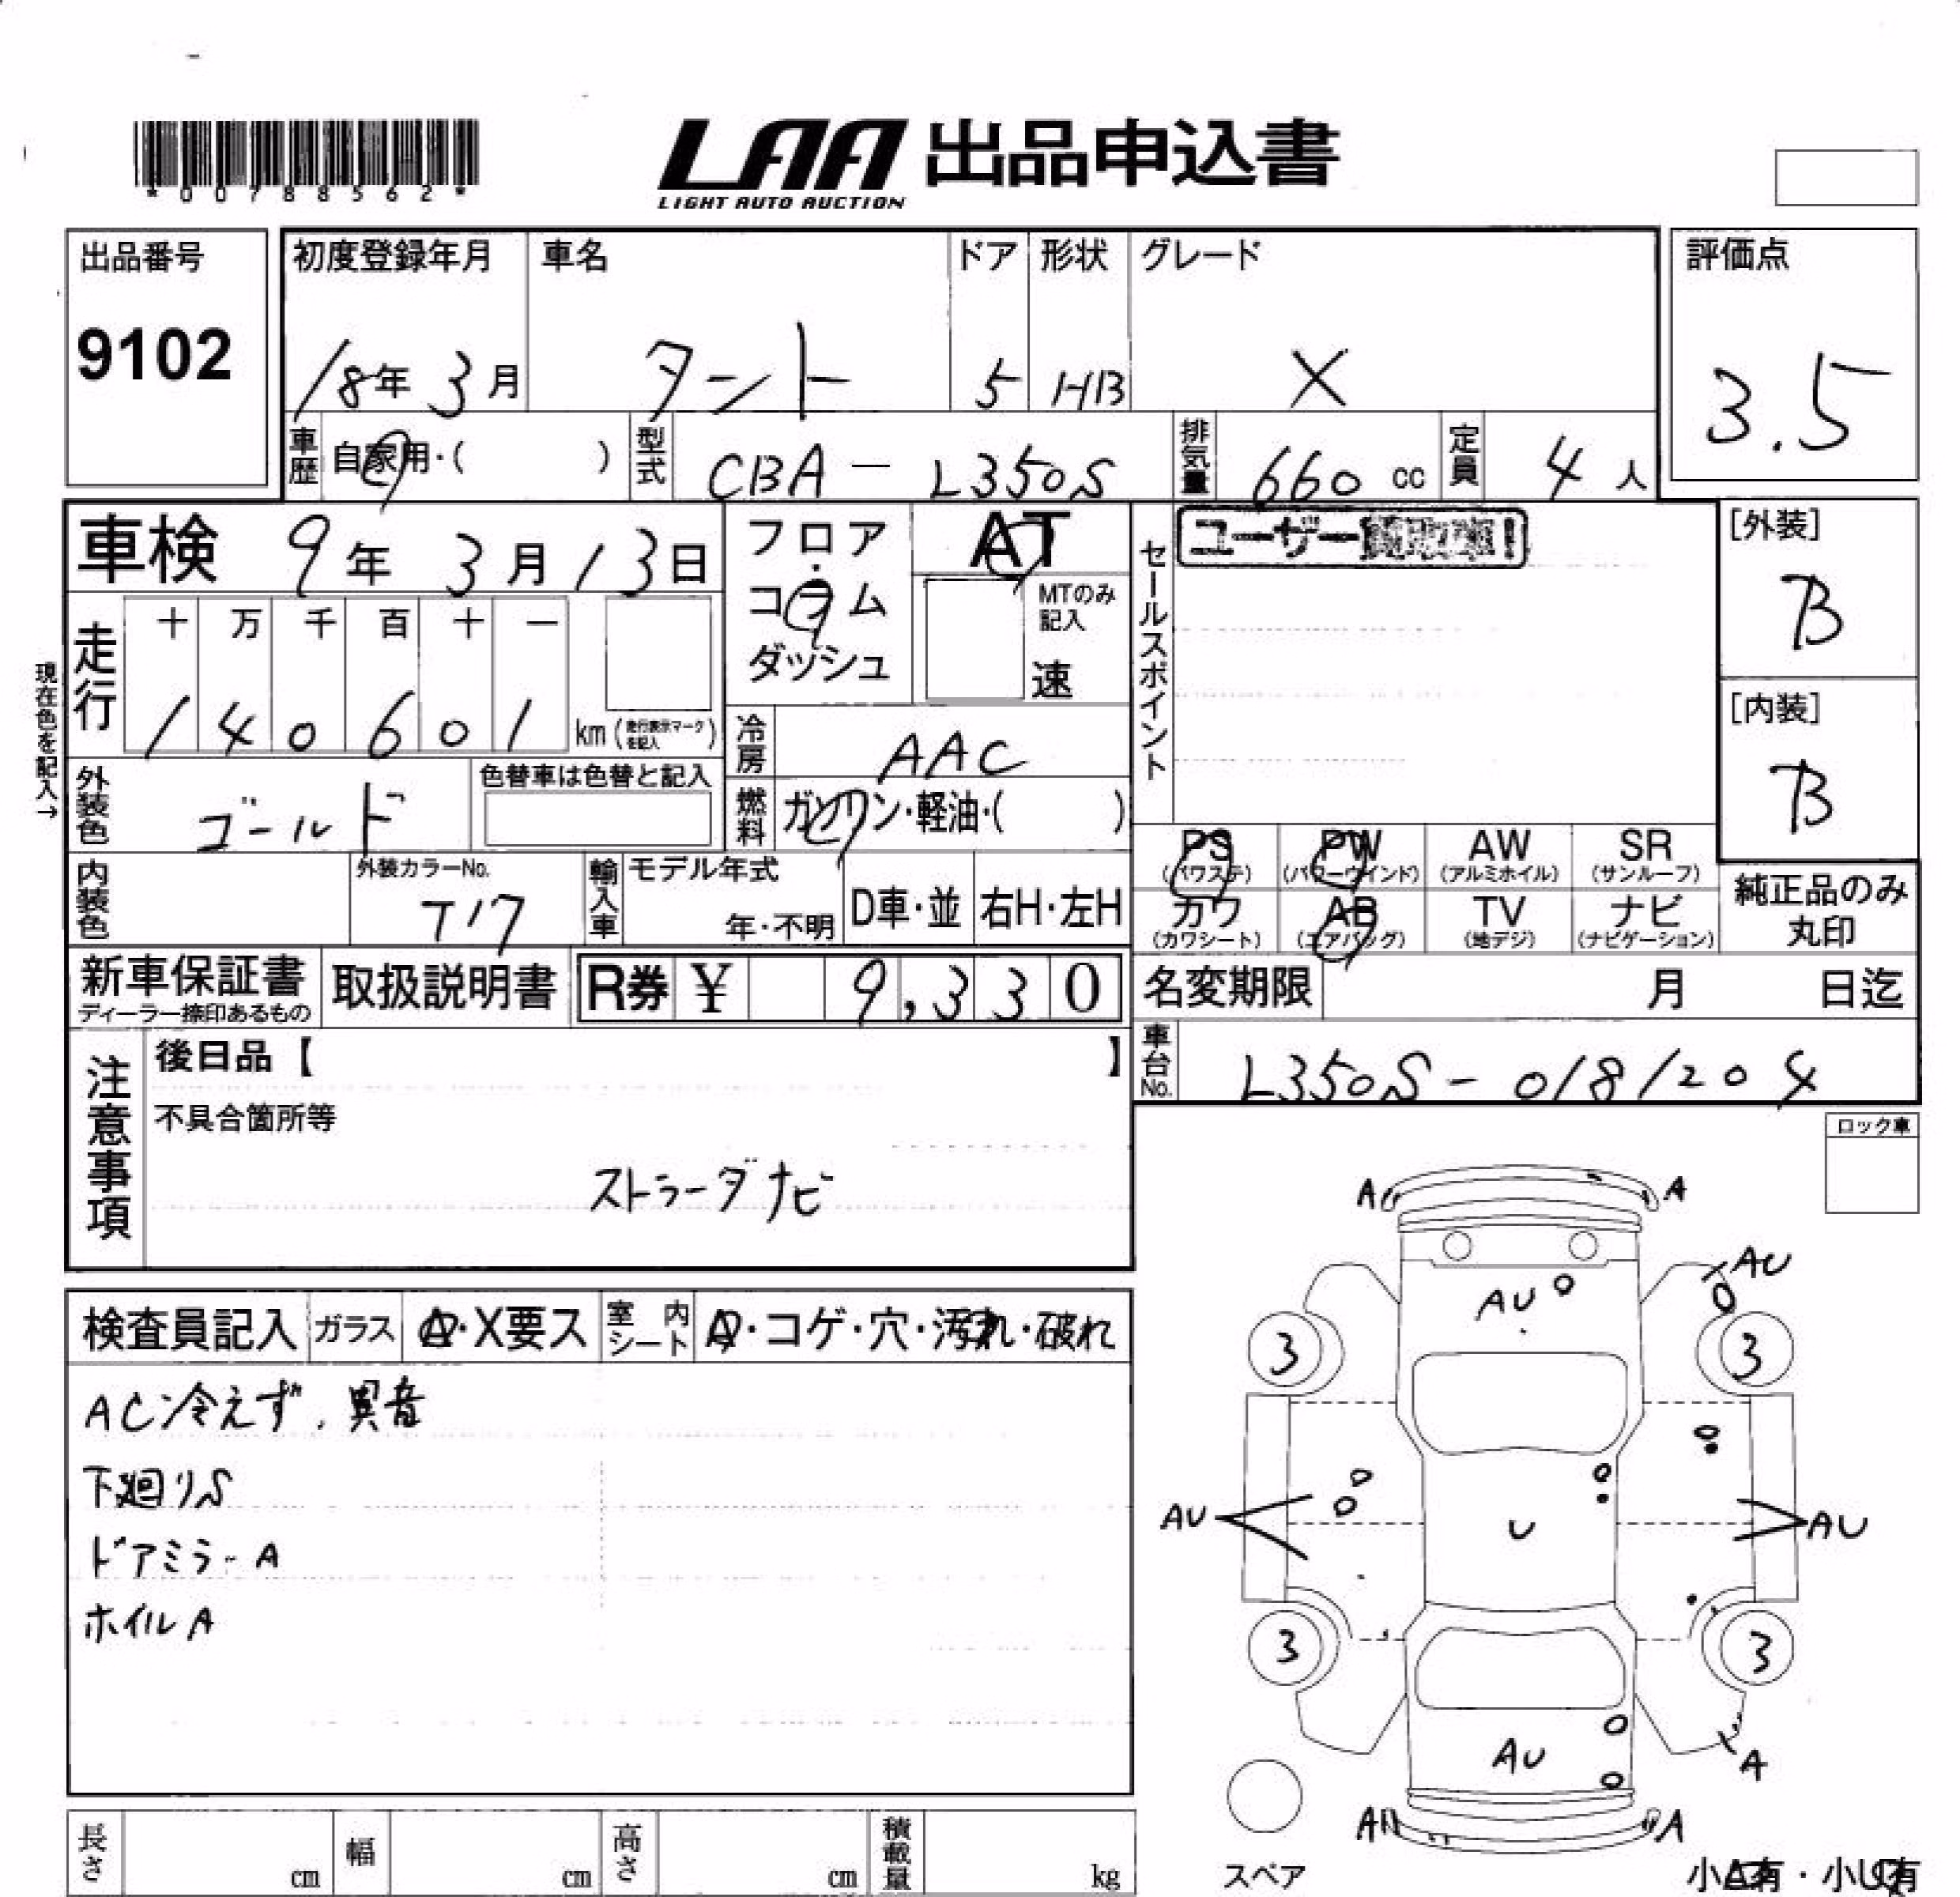 *00788562*
LAA 出品申込書
LIGHT AUTO AUCTION
出品番号
9102
初度登録年月
18年 3月
車名
タント
ドア
5
形状
HB
グレード
X
評価点
3.5
車歴
自家用・( )
型式
CBA - L350S
排気量
660 cc
定員
4人
車検 9年 3月 13日
フロア・コラム
ダッシュ
AT
MTのみ記入
速
セールスポイント
ユーザー
[外装]
B
[内装]
B
現在色を記入→
走行
十 万 千 百 十 一
1 4 0 6 0 1 km (走行表示マークを記入)
冷房
AAC
外装色
ゴールド
色替車は色替と記入
燃料
ガソリン・軽油・( )
内装色
外装カラーNo.
T17
輸入車
モデル年式
年・不明
D車・並
右H・左H
PS (パワステ)
PW (パワーウインド)
AW (アルミホイル)
SR (サンルーフ)
カワ (カワシート)
AB (エアバッグ)
TV (地デジ)
ナビ (ナビゲーション)
純正品のみ丸印
新車保証書
ディーラー捺印あるもの
取扱説明書
R券 ¥ 9,330
名変期限 月 日迄
車台No.
L350S - 0181204
注意事項
後日品【 】
不具合箇所等
ストラーダナビ
ロック車
検査員記入
ガラス
A・X要ス
室内シート
A・コゲ・穴・汚れ・破れ
AC冷えず、異音
下廻りS
ドアミラーA
ホイルA
A
A
AU
AU
3
3
AU
U
AU
3
3
AU
A
A
A
スペア
小A有・小U有
長さ cm
幅 cm
高さ cm
積載量 kg